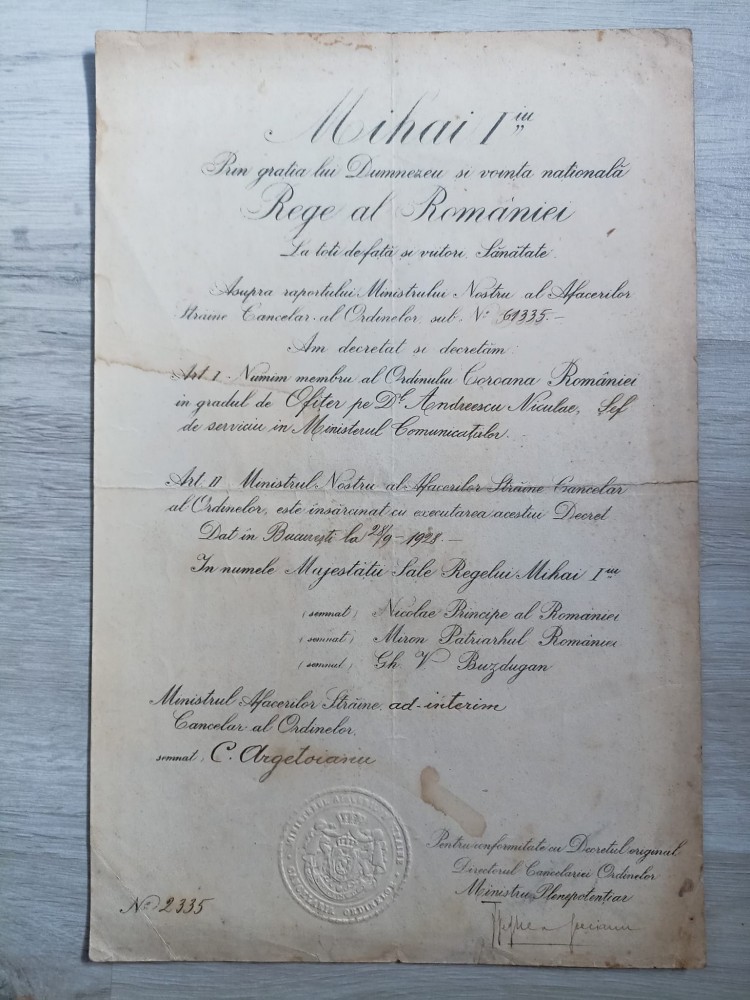 Mihai I iu
Prin gratia lui Dumnezeu si vointa natională
Rege al României
La toti de fată si viitori, Sănătate
Asupra raportului Ministrului Nostru al Afacerilor
Străine Cancelar al Ordinelor sub Nº 61335.-
Am decretat si decretăm:
Art. I - Numim membru al Ordinului Coroana României
in gradul de Ofiter pe Dl Andreescu Niculae, Sef
de serviciu in Ministerul Comunicatiilor.-
Art. II Ministrul Nostru al Afacerilor Străine Cancelar
al Ordinelor, este insărcinat cu executarea acestiu Decret
Dat in București la 28/9 - 1928.-
In numele Majestătii Sale Regelui Mihai I iu
(semnat) Nicolae Principe al României
(semnat) Miron Patriarhul României
(semnat) Gh. V. Buzdugan
Ministrul Afacerilor Străine, ad-interim
Cancelar al Ordinelor,
semnat, C. Argetoianu
MINISTERUL AFACERILOR STRĂINE
CANCELARIA ORDINELOR
Pentru conformitate cu Decretul original
Directorul Cancelariei Ordinelor
Ministru Plenipotentiar
Nº 2335